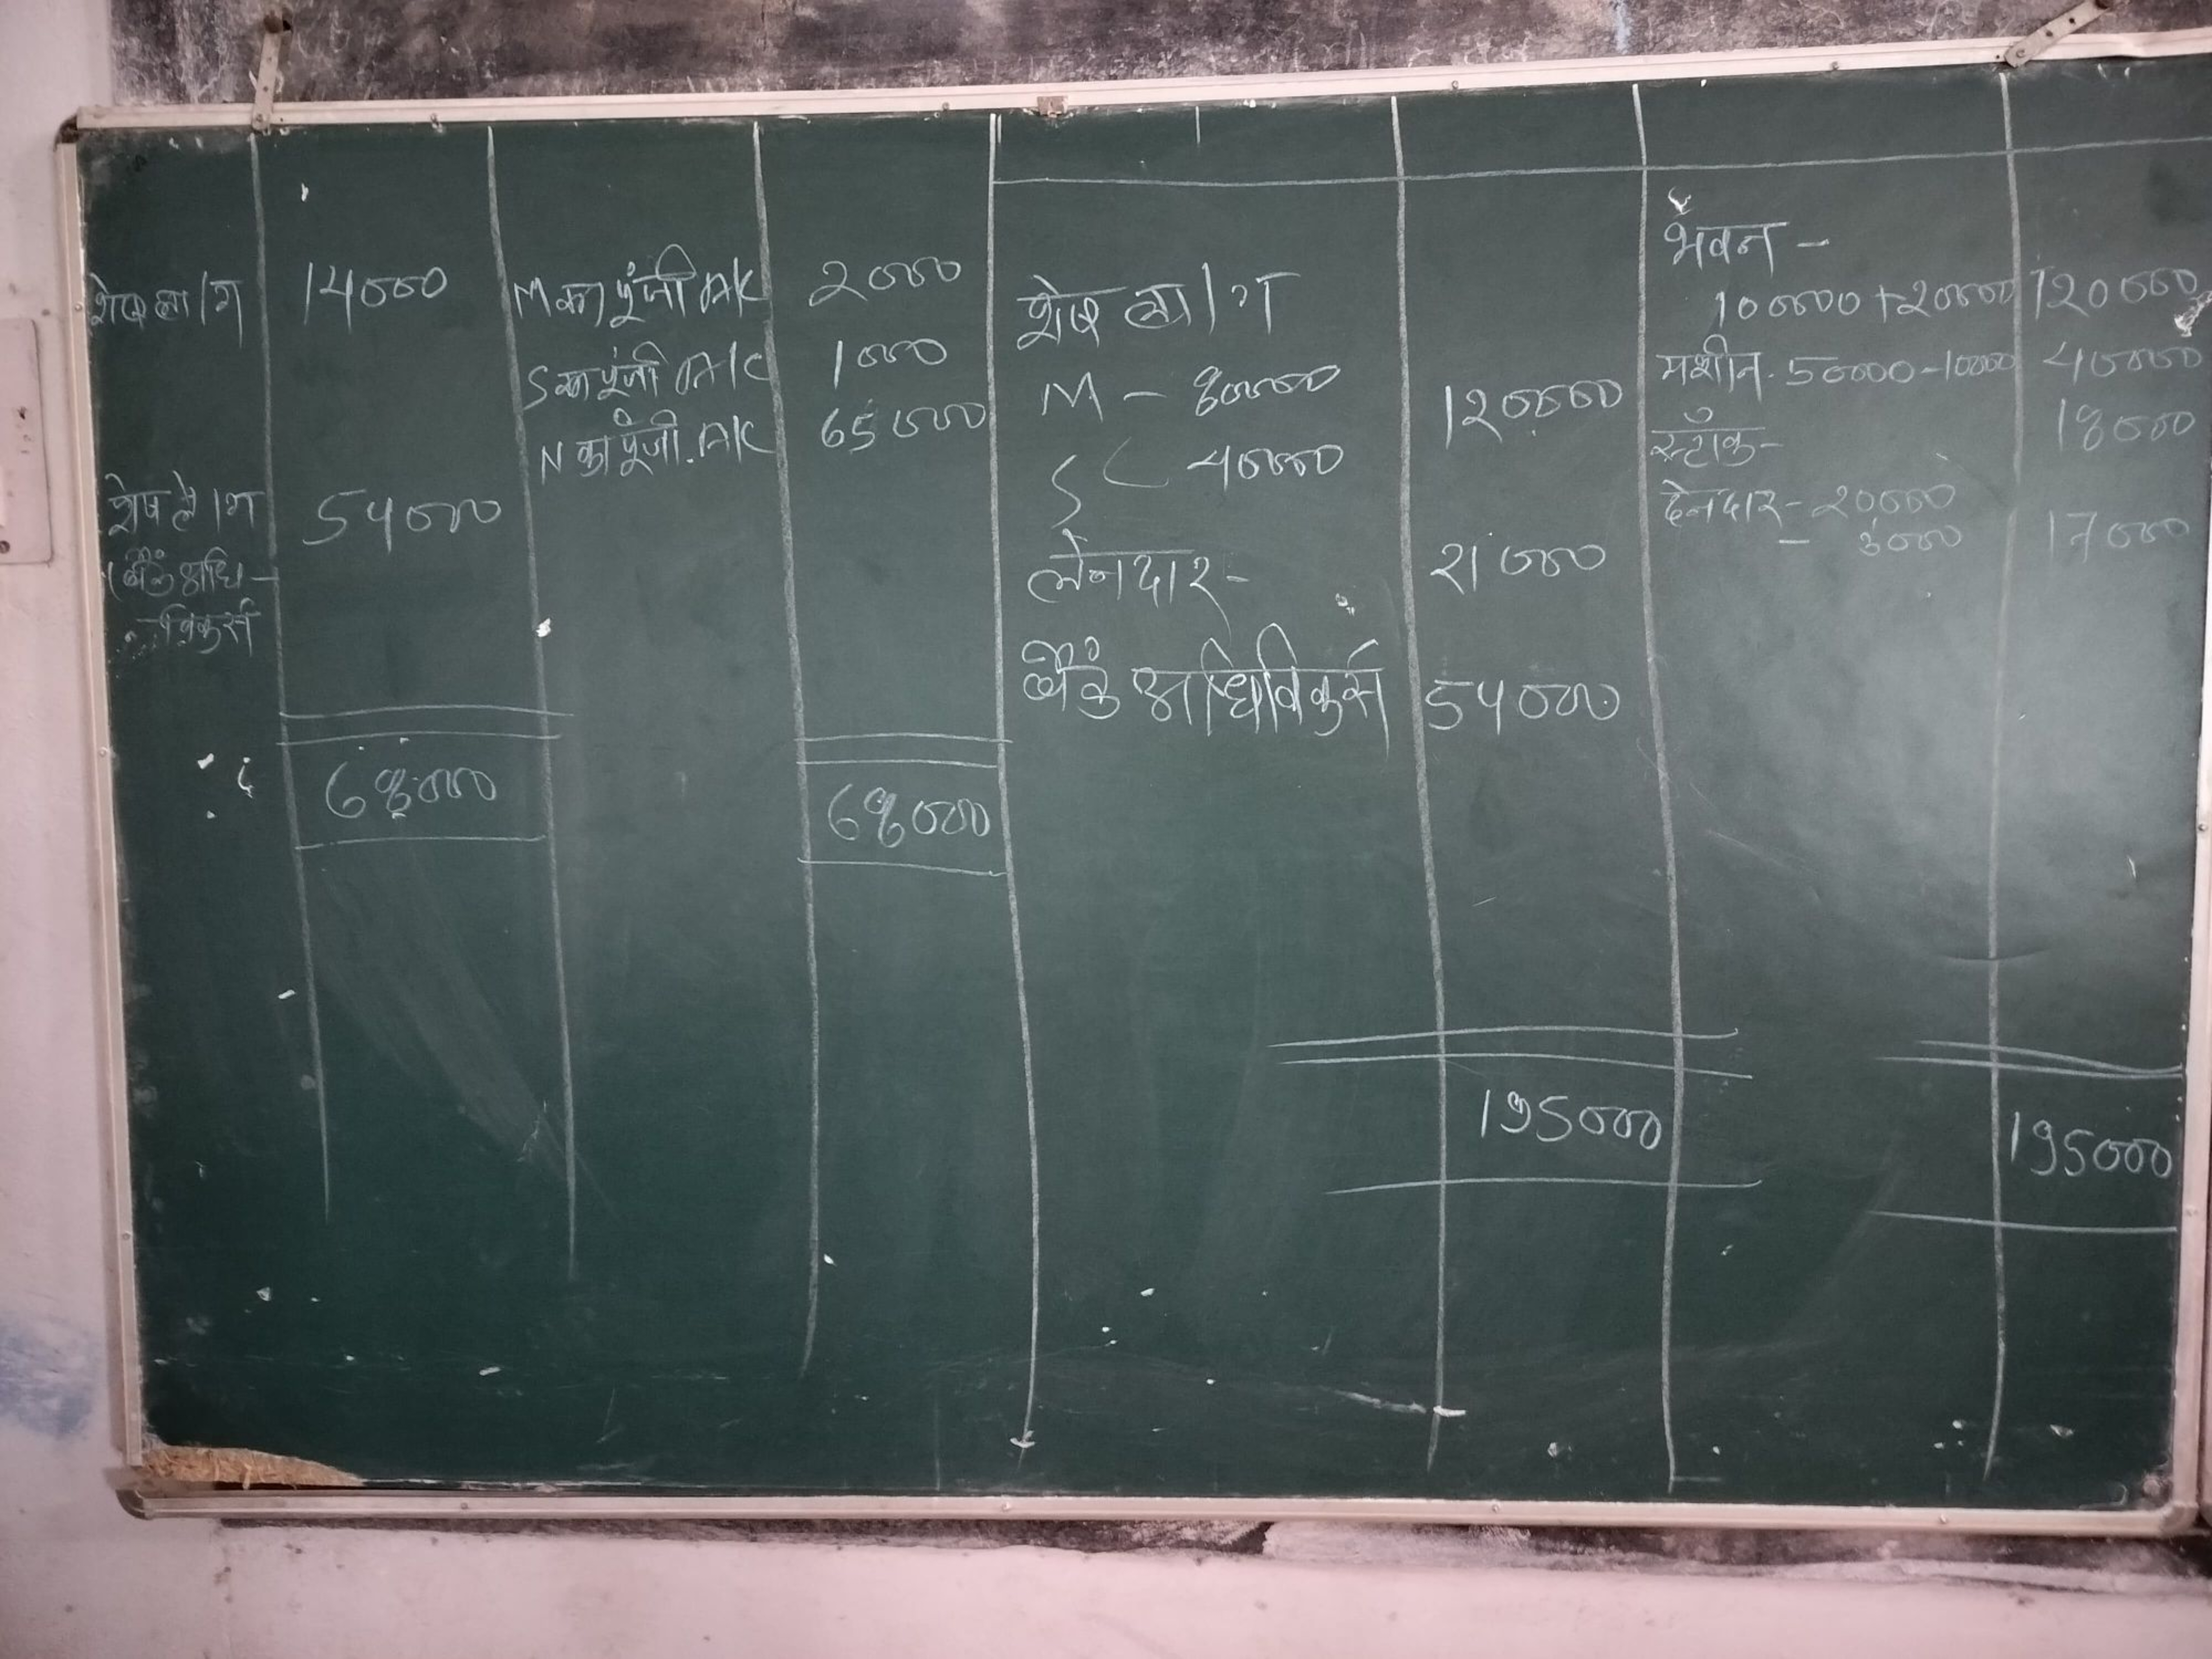 शेष ला/ग 14000 M का पूंजी A/C 2000
S का पूंजी A/C 1000
N का पूंजी A/C 65000
शेष ले/ग 54000
(बैंक अधि-
विकर्स
68000 68000
शेष ला/ग
M - 80000 120000
S 40000
लेनदार- 21000
बैंक अधिविकर्स 54000
195000
भवन -
100000+20000 120000
मशीन. 50000-10000 40000
स्टॉक- 18000
देनदार- 20000
- 3000 17000
195000